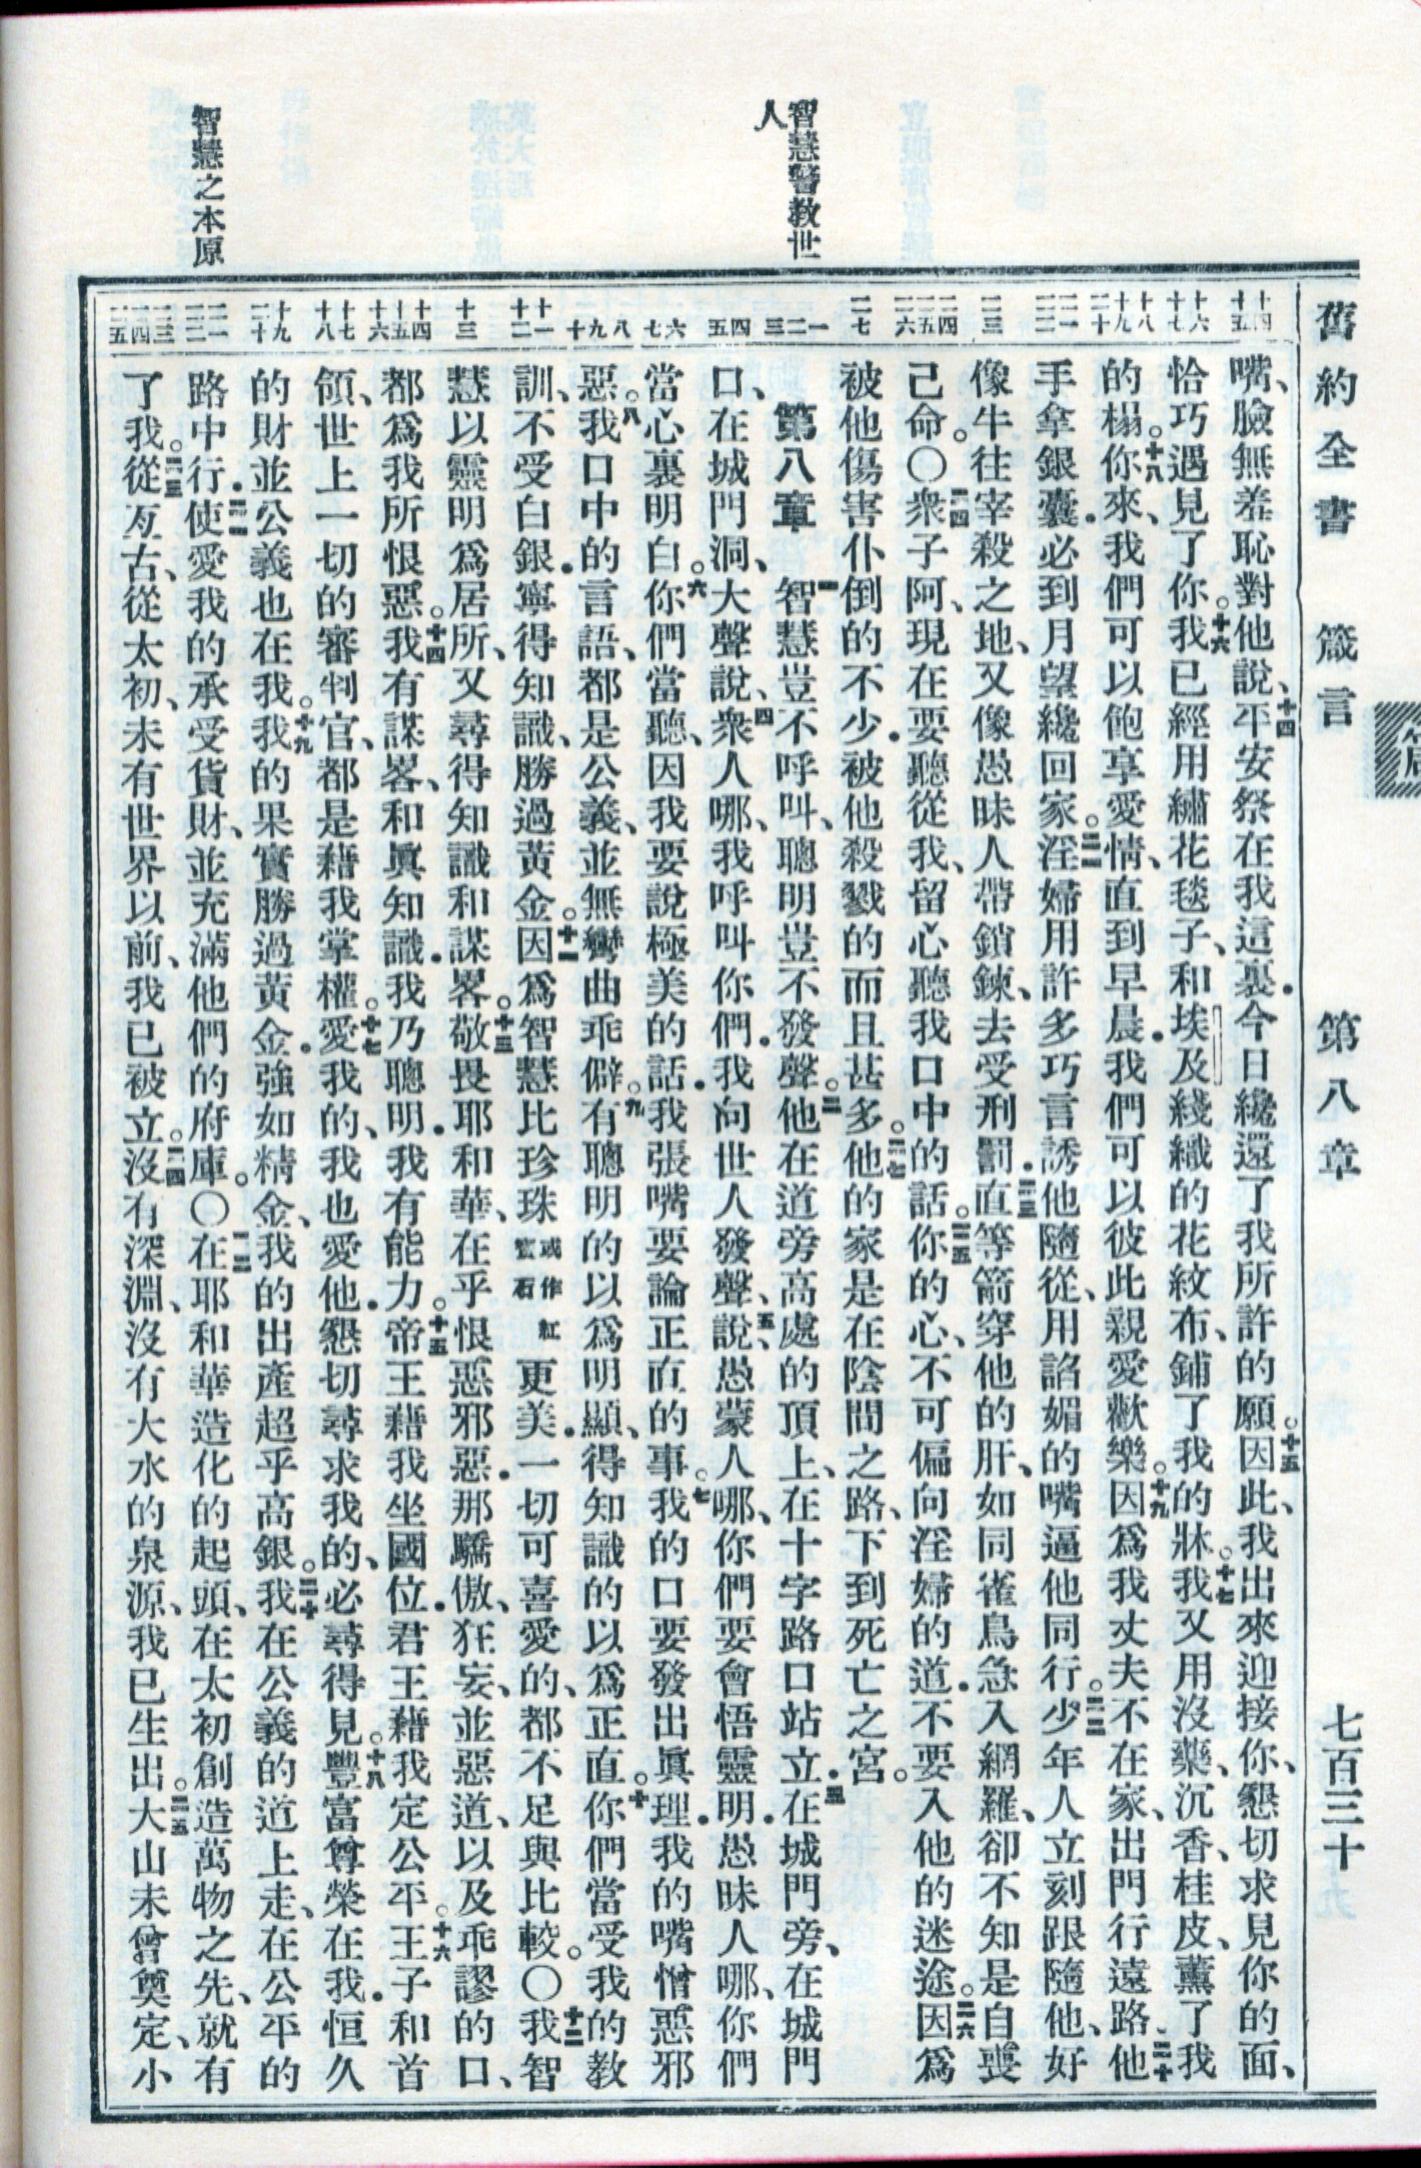 舊約全書 箴言 第八章 七百三十
嘴、臉無羞恥對他說、十四平安祭在我這裏．今日纔還了我所許的願。十五因此、我出來迎接你、懇切求見你的面、
恰巧遇見了你。十六我已經用繡花毯子、和埃及綫織的花紋布、鋪了我的牀。十七我又用沒藥、沉香、桂皮、薰了我
的榻。十八你來、我們可以飽享愛情、直到早晨．我們可以彼此親愛歡樂。十九因爲我丈夫不在家、出門行遠路、二十他
手拿銀囊．必到月望纔回家。二一淫婦用許多巧言誘他隨從、用諂媚的嘴逼他同行。二二少年人立刻跟隨他、好
像牛往宰殺之地、又像愚昧人帶鎖鍊、去受刑罰．二三直等箭穿他的肝、如同雀鳥急入網羅、卻不知是自喪
己命。〇二四衆子阿、現在要聽從我、留心聽我口中的話。二五你的心、不可偏向淫婦的道．不要入他的迷途。二六因爲
被他傷害仆倒的不少．被他殺戮的而且甚多。二七他的家是在陰間之路、下到死亡之宮。
第八章 一智慧豈不呼叫、聰明豈不發聲。二他在道旁高處的頂上、在十字路口站立．三在城門旁、在城門
口、在城門洞、大聲說、四衆人哪、我呼叫你們．我向世人發聲、說、五愚蒙人哪、你們要會悟靈明．愚昧人哪、你們
當心裏明白。六你們當聽、因我要說極美的話．我張嘴要論正直的事。七我的口要發出眞理．我的嘴憎惡邪
惡。八我口中的言語、都是公義、並無彎曲乖僻。九有聰明的以爲明顯、得知識的以爲正直。十你們當受我的教
訓、不受白銀．寧得知識、勝過黃金。十一因爲智慧比珍珠或作紅寶石更美．一切可喜愛的、都不足與比較。〇十二我智
慧以靈明爲居所、又尋得知識和謀畧。十三敬畏耶和華、在乎恨惡邪惡．那驕傲、狂妄、並惡道、以及乖謬的口、
都爲我所恨惡。十四我有謀畧、和眞知識．我乃聰明．我有能力。十五帝王藉我坐國位．君王藉我定公平。十六王子和首
領、世上一切的審判官、都是藉我掌權。十七愛我的、我也愛他．懇切尋求我的、必尋得見。十八豐富尊榮在我．恒久
的財並公義也在我。十九我的果實勝過黃金．強如精金、我的出產超乎高銀。二十我在公義的道上走、在公平的
路中行．二一使愛我的承受貨財、並充滿他們的府庫。〇二二在耶和華造化的起頭、在太初創造萬物之先、就有
了我。二三從亙古、從太初、未有世界以前、我已被立。二四沒有深淵、沒有大水的泉源、我已生出。二五大山未曾奠定、小
十四 十五 十六 十七 十八 十九 二十 二一 二二 二三 二四 二五 二六 二七 一 二 三 四 五 六 七 八 九 十 十一 十二 十三 十四 十五 十六 十七 十八 十九 二十 二一 二二 二三 二四 二五
智慧警教世人
智慧之本原